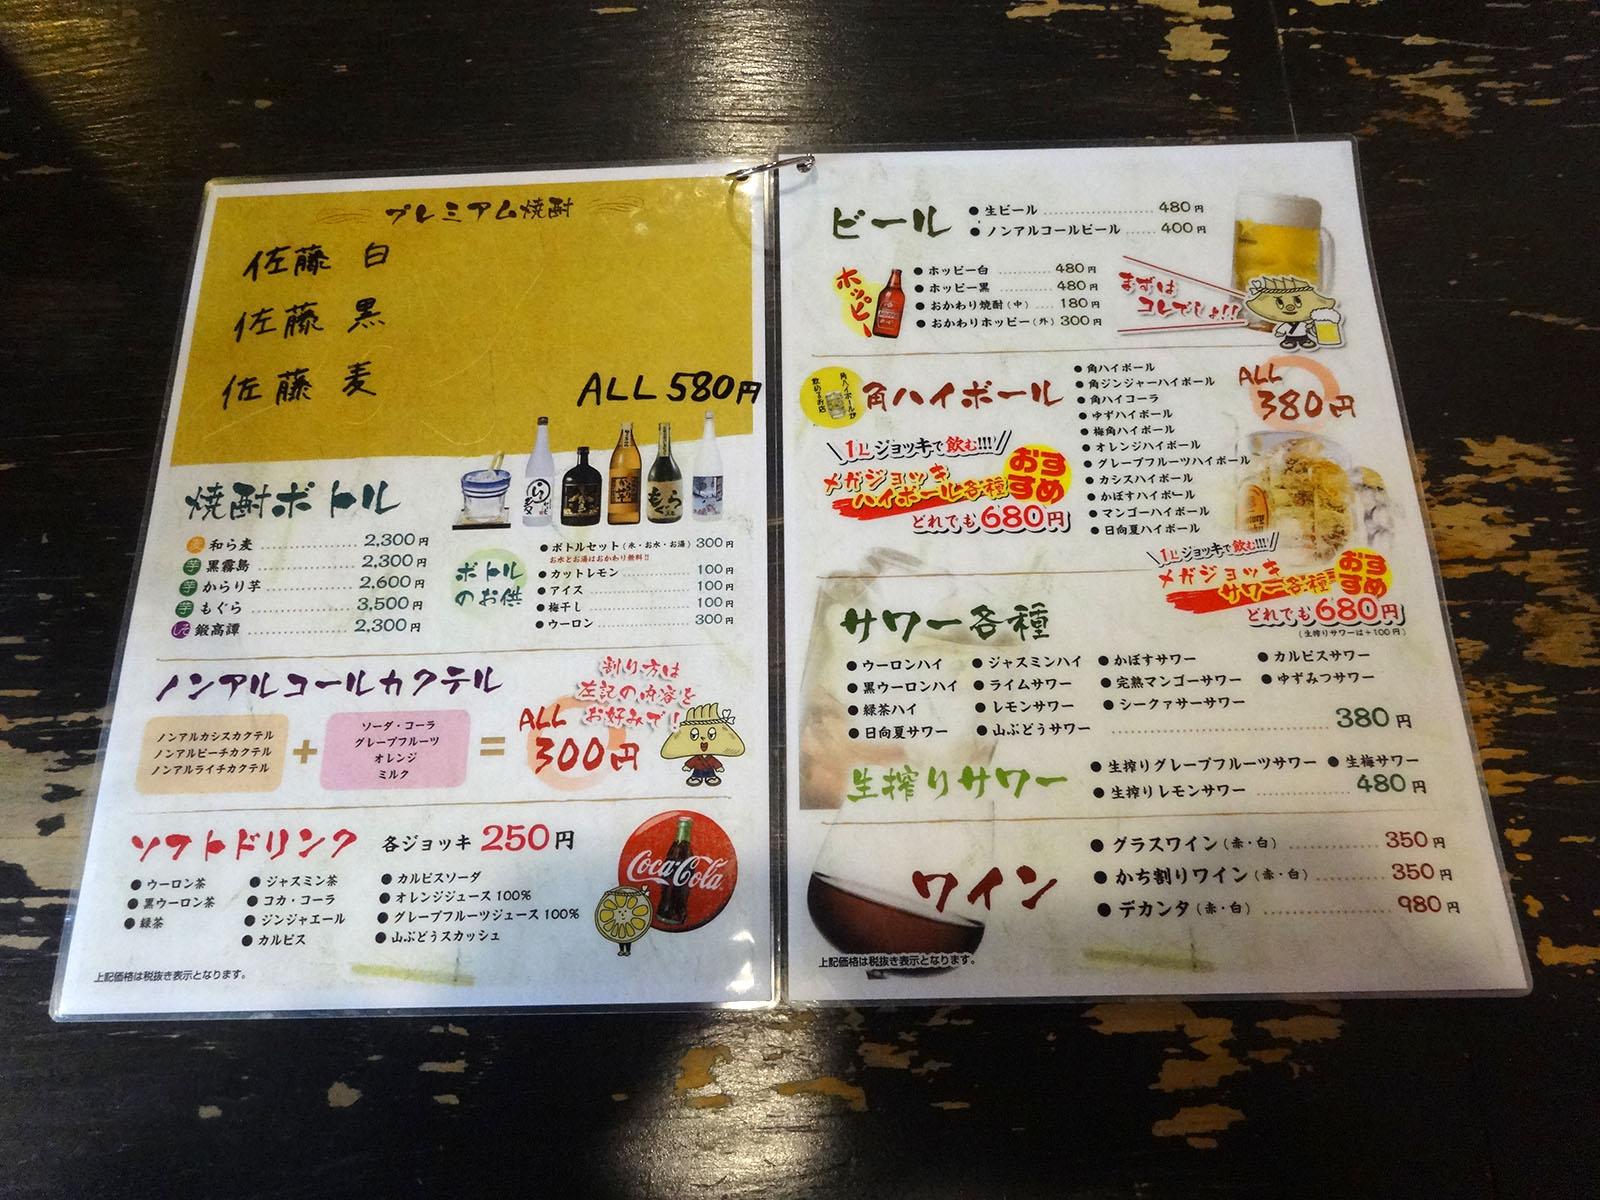 プレミアム焼酎
佐藤 白
佐藤 黒
佐藤 麦
ALL 580円
焼酎ボトル
麦 和ら麦 2,300円
芋 黒霧島 2,300円
芋 からり芋 2,600円
芋 もぐら 3,500円
しそ 鍛高譚 2,300円
ボトルのお供
●ボトルセット（氷・お水・お湯） 300円
お水とお湯はおかわり無料!!
●カットレモン 100円
●アイス 100円
●梅干し 100円
●ウーロン 300円
ノンアルコールカクテル
ノンアルカシスカクテル
ノンアルピーチカクテル
ノンアルライチカクテル
+
ソーダ・コーラ
グレープフルーツ
オレンジ
ミルク
=
ALL
300円
割り方は
左記の内容を
お好みで!
ソフトドリンク 各ジョッキ 250円
●ウーロン茶
●黒ウーロン茶
●緑茶
●ジャスミン茶
●コカ・コーラ
●ジンジャエール
●カルピス
●カルピスソーダ
●オレンジジュース100%
●グレープフルーツジュース100%
●山ぶどうスカッシュ
Coca-Cola
上記価格は税抜き表示となります。
ビール
●生ビール 480円
●ノンアルコールビール 400円
ホッピー
●ホッピー白 480円
●ホッピー黒 480円
●おかわり焼酎（中） 180円
●おかわりホッピー（外） 300円
まずは
コレでしょ!!!
角ハイボールが
飲めるお店
角ハイボール
●角ハイボール
●角ジンジャーハイボール
●角ハイコーラ
●ゆずハイボール
●梅角ハイボール
●オレンジハイボール
●グレープフルーツハイボール
●カシスハイボール
●かぼすハイボール
●マンゴーハイボール
●日向夏ハイボール
ALL
380円
1Lジョッキで飲む!!!
メガジョッキ
ハイボール各種
おすすめ
どれでも680円
1Lジョッキで飲む!!!
メガジョッキ
サワー各種
おすすめ
どれでも680円
（生搾りサワーは+100円）
サワー各種
●ウーロンハイ
●黒ウーロンハイ
●緑茶ハイ
●日向夏サワー
●ジャスミンハイ
●ライムサワー
●レモンサワー
●山ぶどうサワー
●かぼすサワー
●完熟マンゴーサワー
●シークァサーサワー
●カルピスサワー
●ゆずみつサワー
380円
生搾りサワー
●生搾りグレープフルーツサワー ●生梅サワー
●生搾りレモンサワー 480円
ワイン
●グラスワイン（赤・白） 350円
●かち割りワイン（赤・白） 350円
●デカンタ（赤・白） 980円
上記価格は税抜き表示となります。